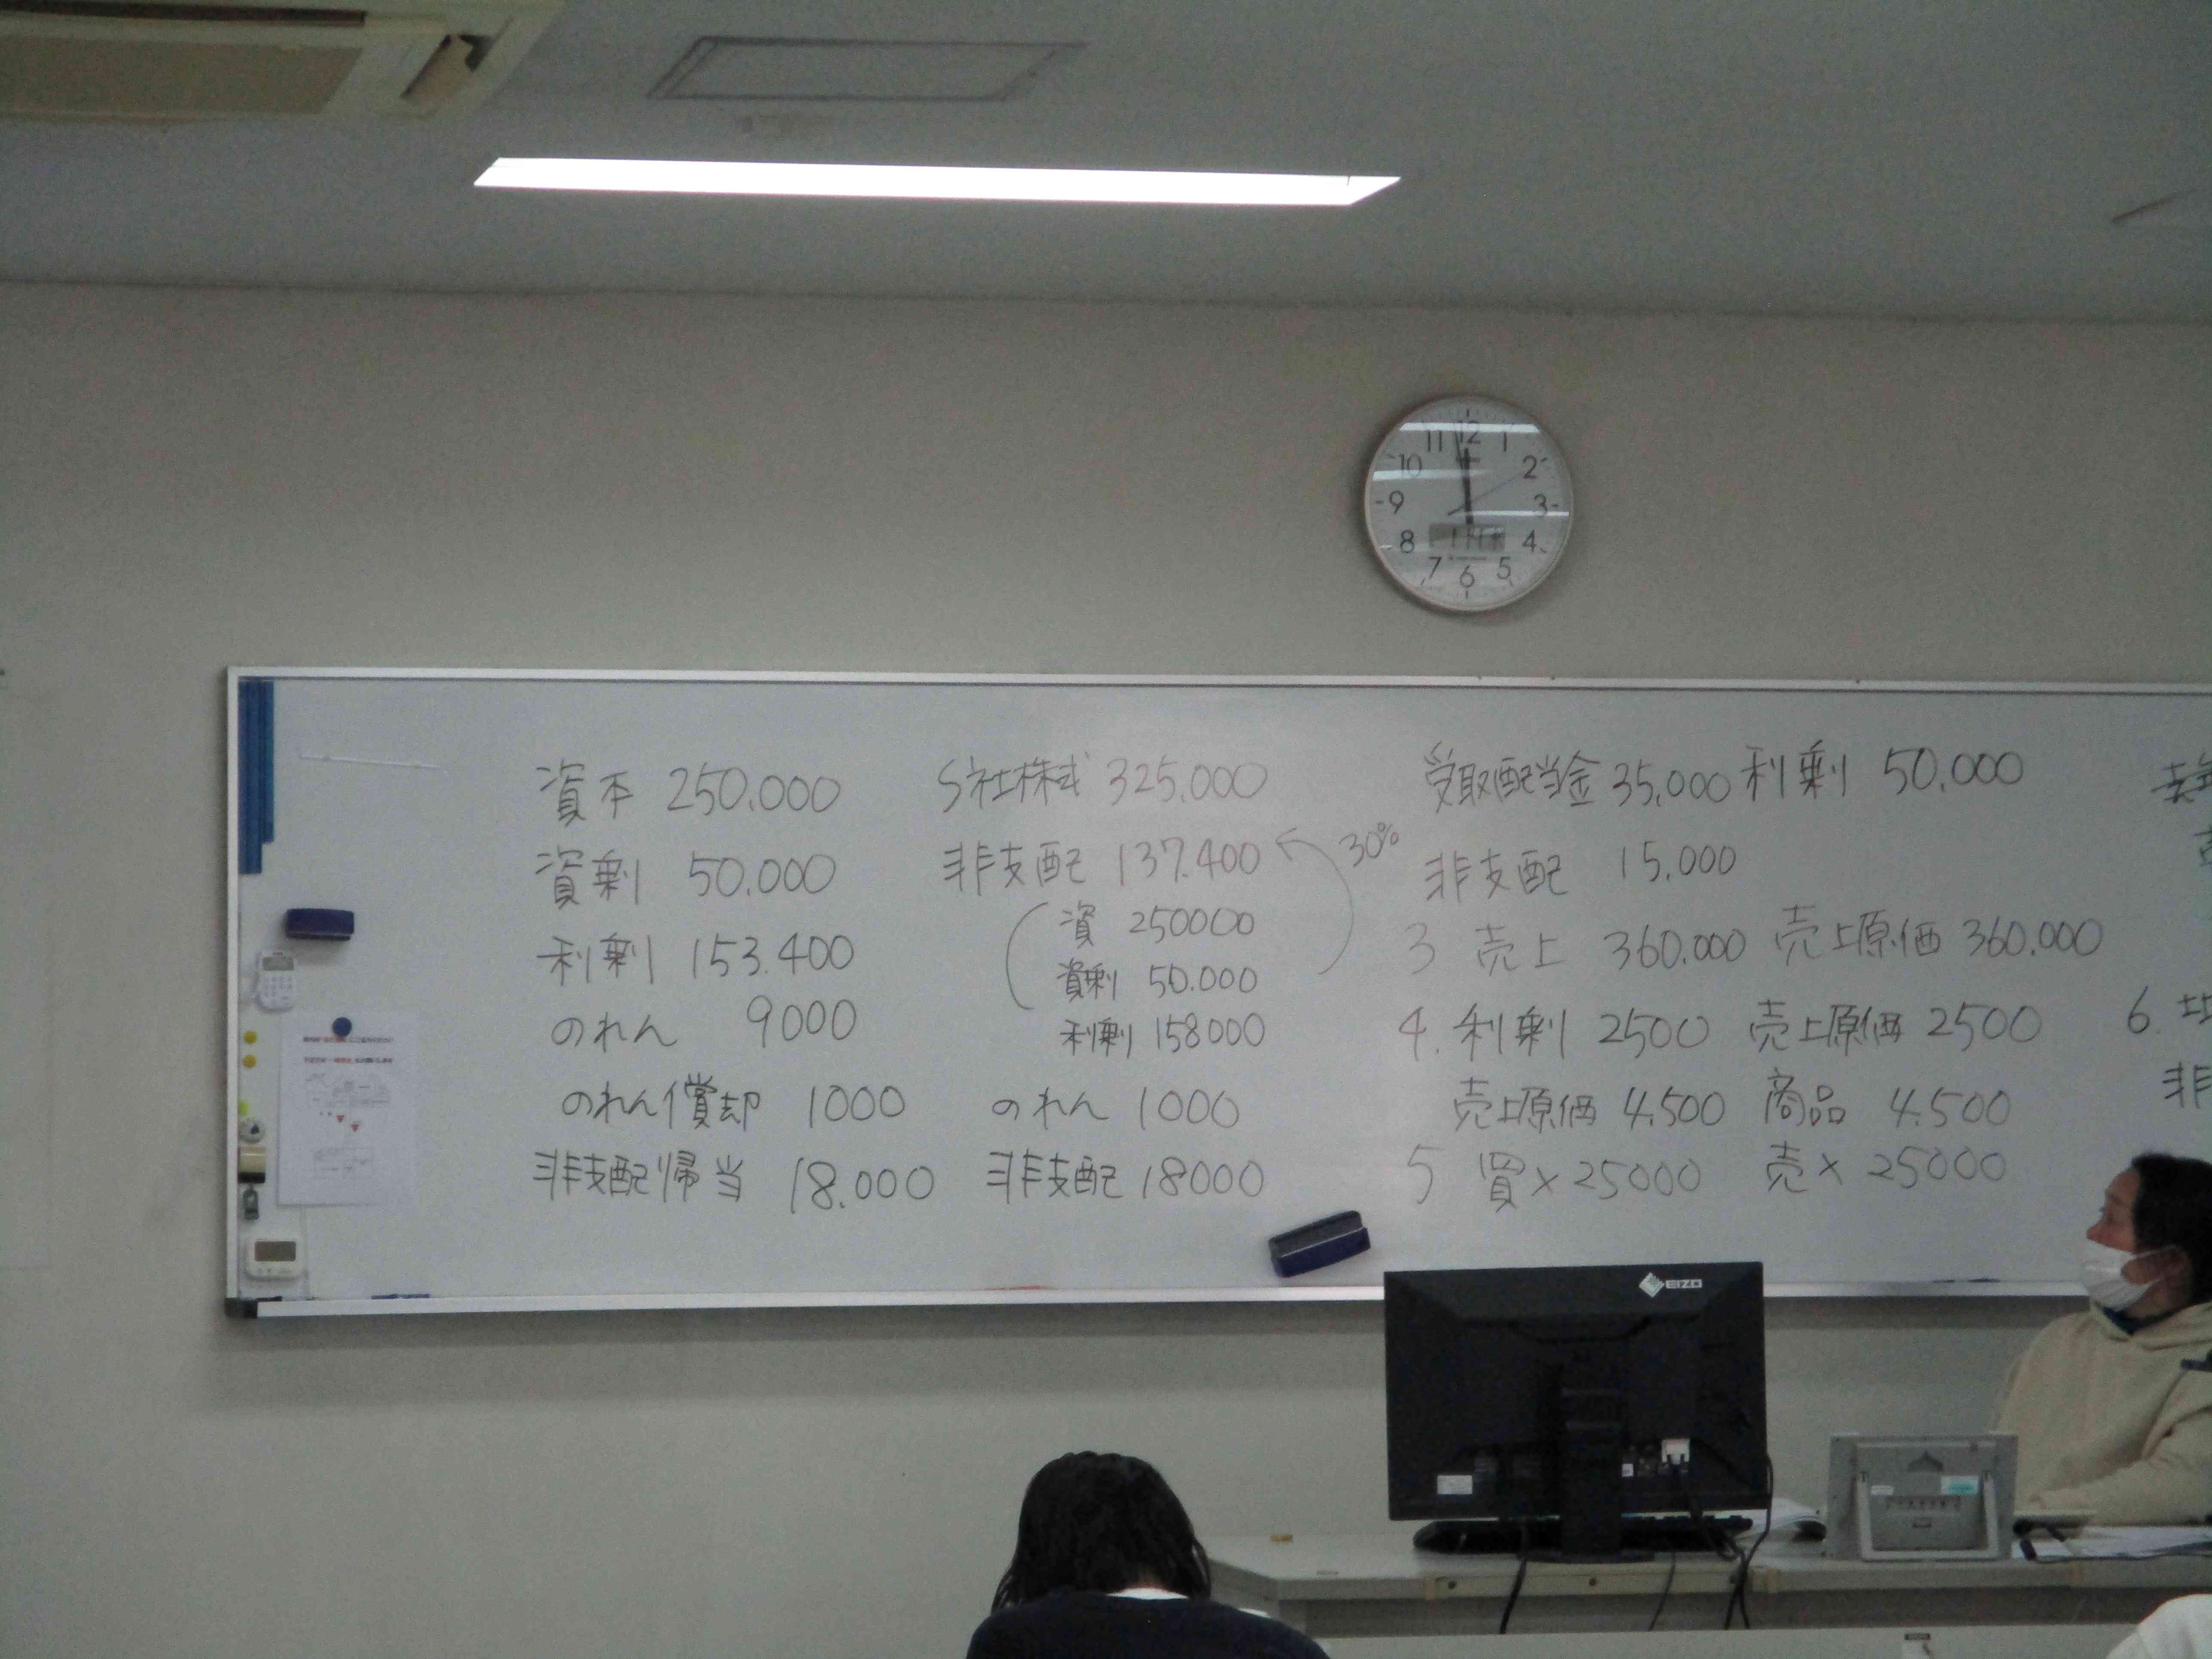 資本 250.000 S社株式 325.000
資剰 50.000 非支配 137.400 30%
利剰 153.400 資 250000
資剰 50.000
のれん 9000 利剰 158000
のれん償却 1000 のれん 1000
非支配帰当 18.000 非支配 18000
受取配当金 35,000 利剰 50.000
非支配 15.000
3 売上 360.000 売上原価 360.000
4. 利剰 2500 売上原価 2500
売上原価 4.500 商品 4.500
5 買× 25000 売× 25000
6.
非
11 12 1
10 2
9 3
8 4
7 6 5
EIZO